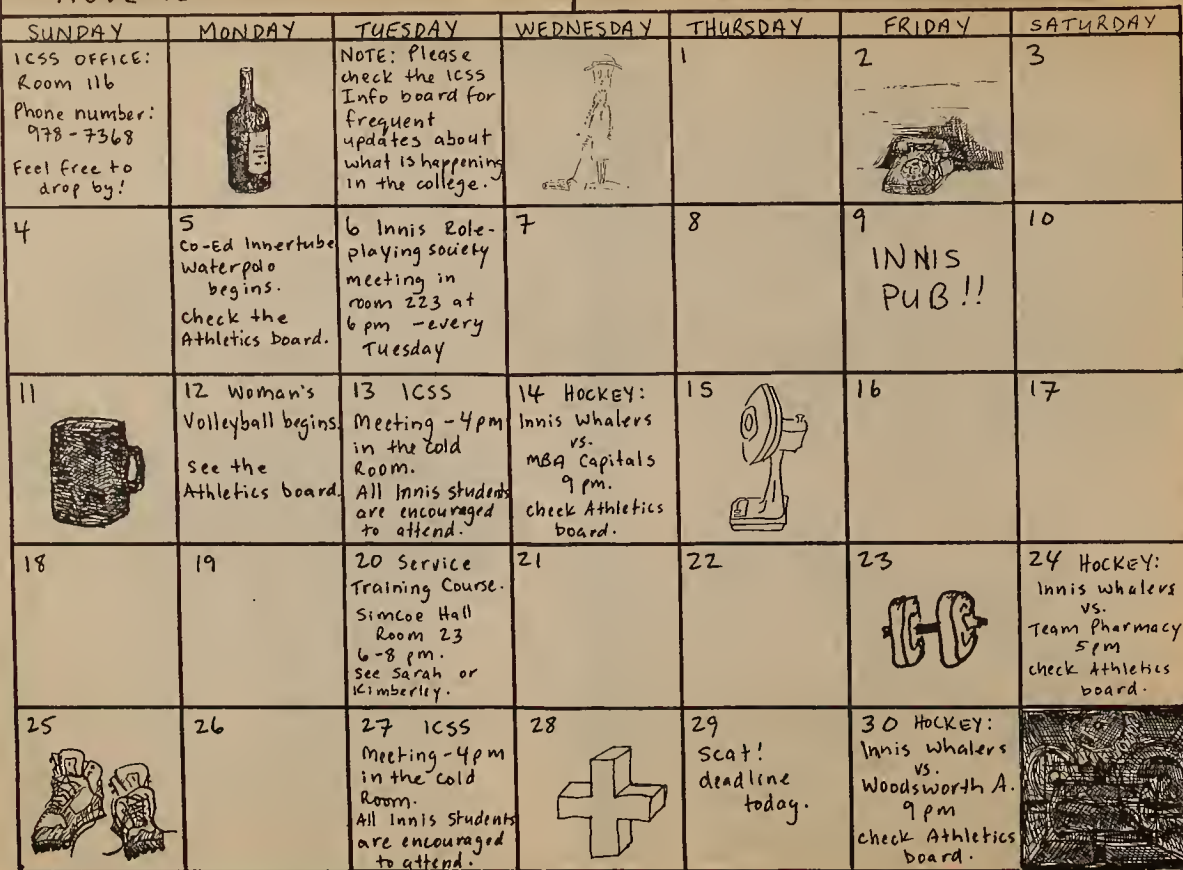 SUNDAY MONDAY TUESDAY WEDNESDAY THURSDAY FRIDAY SATURDAY
ICSS OFFICE:
Room 116
Phone number:
978-7368
Feel free to
drop by!
NOTE: Please
check the ICSS
Info board for
frequent
updates about
what is happening
in the college.
1
2
3
4
5
Co-Ed Innertube
Waterpolo
begins.
Check the
Athletics board.
6 Innis Role-
playing society
meeting in
room 223 at
6 pm - every
Tuesday
7
8
9
INNIS
PUB!!
10
11
12 Woman's
Volleyball begins.
See the
Athletics board.
13 ICSS
Meeting - 4pm
in the cold
Room.
All Innis students
are encouraged
to attend.
14 HOCKEY:
Innis Whalers
vs.
MBA Capitals
9 pm.
check Athletics
board.
15
16
17
18
19
20 Service
Training Course.
Simcoe Hall
Room 23
6-8 pm.
see Sarah or
Kimberley.
21
22
23
24 HOCKEY:
Innis Whalers
vs.
Team Pharmacy
5pm
check Athletics
board.
25
26
27 ICSS
Meeting - 4pm
in the cold
Room.
All Innis Students
are encouraged
to attend.
28
29
Scat!
deadline
today.
30 HOCKEY:
Innis Whalers
vs.
Woodsworth A.
9 pm
check Athletics
board.